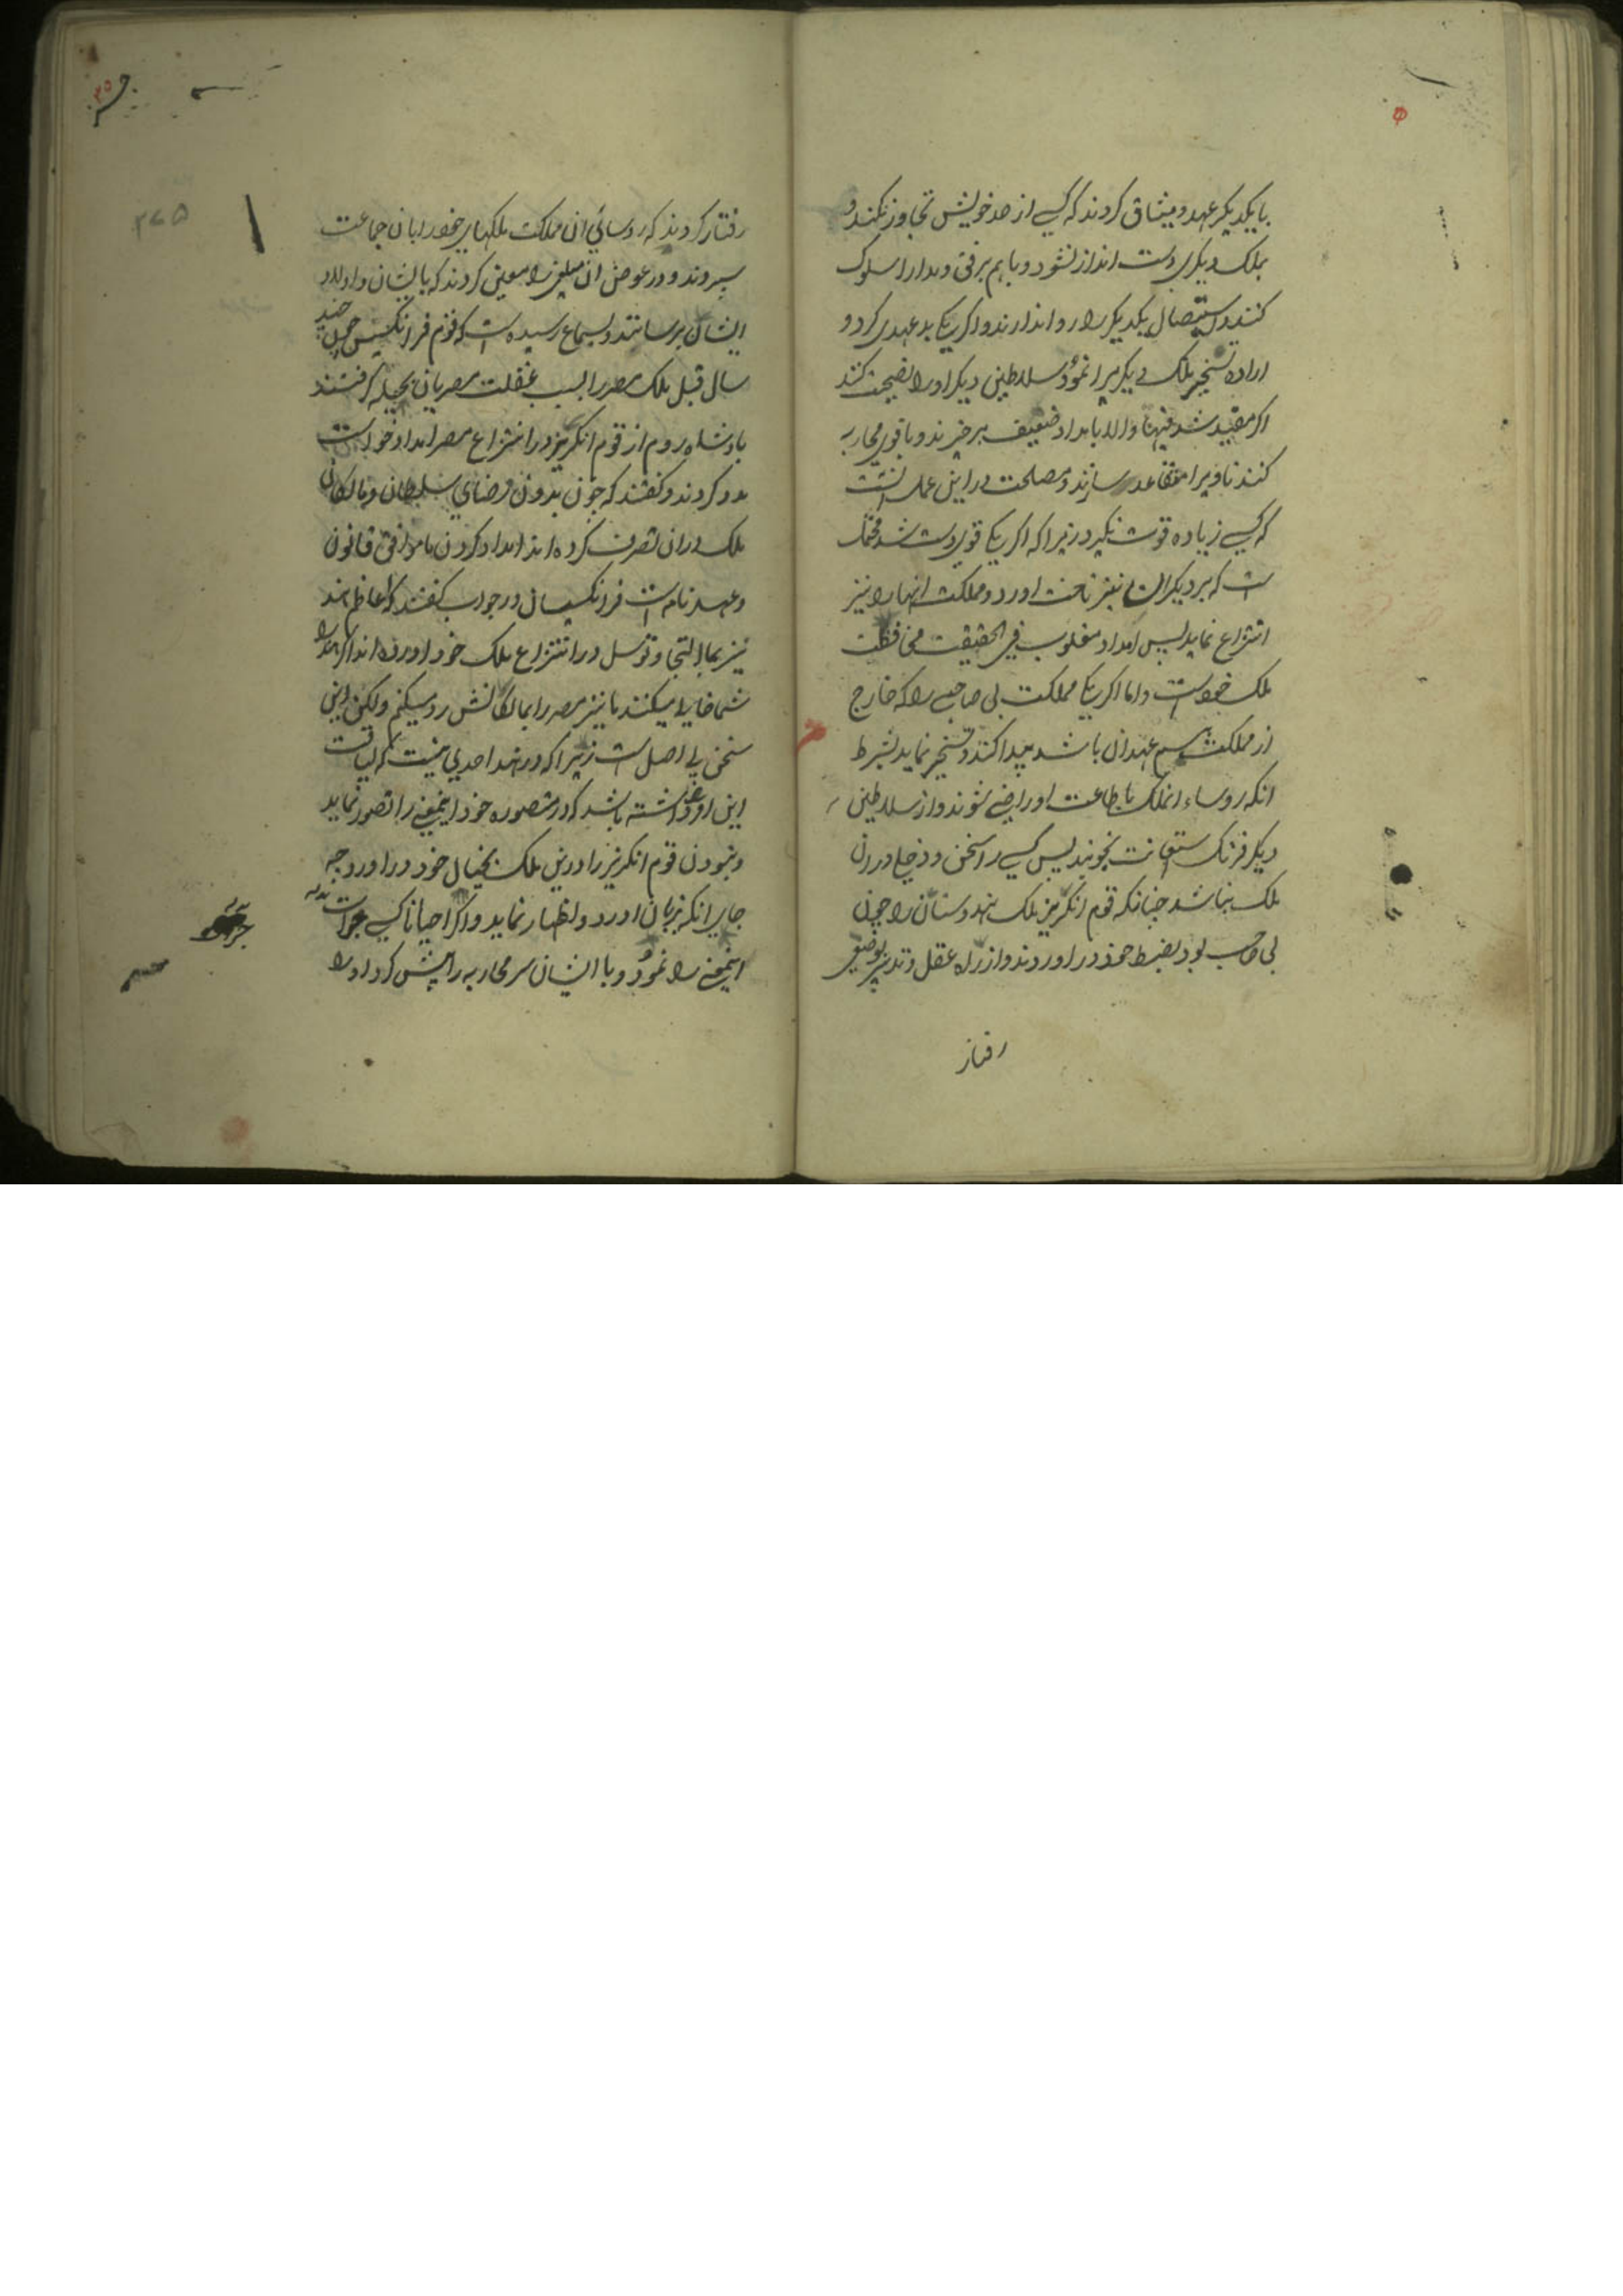 با یکدیکر عهد و میثاق کردند که کسی از حد خویش تجاوز نکند و
بملک دیکری دست انداز نشود و باهم برفق و مدارا سلوک
کنند و استیصال یکدیکر را روا ندارند و اکر یکی بدعهدی کرد و
اراده تسخیر ملک دیکریرا نمود سلاطین دیکر او را نصیحت کنند
اکر مفید شد فبها و الا بامداد ضعیف برخیزند و با قوی محاربه
کنند تا ویرا متقاعد سازند و مصلحت در این عمل انست
که کسی زیاده قوت نکیرد زیرا که اکر یکی قویدست شد محتمل
است که بر دیکران نیز تاخت اورد و مملکت انها را نیز
انتزاع نماید پس امداد مغلوب فی الحقیقت محافظت
ملک خود است و اما اکر یکی مملکت بی صاحبی را که خارج
از مملکت هم عهدان باشد پیدا کند و تسخیر نماید بشرط
انکه روساء انملک باطاعت او راضی شوند و از سلاطین
دیکر فرنک استعانت نجویند پس کسی را سخن و دخلی در ان
ملک نباشد چنانکه قوم انکریز ملک هندوستان را چون
بی صاحب بود بضبط خود در اوردند و از راه عقل و تدبیر بوضعی
رفتار
رفتار کردند که روسائی ان مملکت ملکهای خود را بان جماعت
سپردند و در عوض ان مبلغی را معین کردند که بایشان و اولاد
ایشان برسانند و بسماع رسیده است که قوم فرانکسیس چون چند
سال قبل ملک مصر را بسبب غفلت مصریان بحیله کرفتند
پادشاه روم از قوم انکریز در انتزاع مصر امداد خواست
مدد کردند و کفتند که چون بدون رضای سلطان و مالکان
ملک در ان تصرف کرده اند امداد کردن ما موافق قانون
و عهد نامه است فرانکسیان در جواب کفتند که اعاظم هند
نیز بما التجا و توسل در انتزاع ملک خود اورده اند اکر هند را
شما خالی میکنند ما نیز مصر را بمالکانش رد میکنیم ولکن این
سخن بی اصل است زیرا که در هند احدی نیست که لیاقت
این او داشته باشد که در متصوره خود اینمعنی را تصور نماید
و نبودن قوم انکریز را در این ملک بخیال خود در اورد چه
جای انکه بزبان اورد و اظهار نماید و اکر احیانا کسی جرات
اینمعنی را نمود و با ایشان سر محاربه را پیش کرد او را
۲۷۵